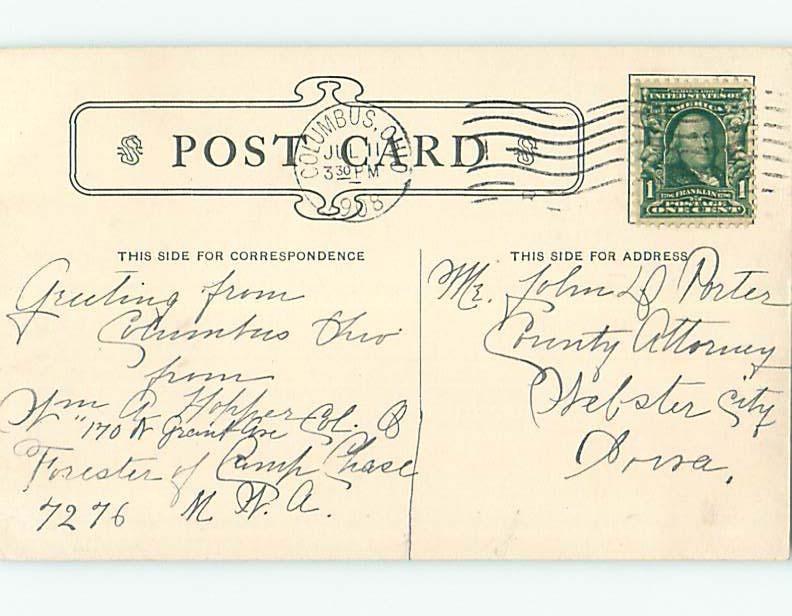 POST CARD
COLUMBUS, OHIO
JUL 11
3 30 PM
1908
SERIES 1902
UNITED STATES OF
AMERICA
1 FRANKLIN 1
POSTAGE
ONE CENT
THIS SIDE FOR CORRESPONDENCE
Greeting from
Columbus Ohio
from
Wm A Hopper Col. O
"170 W Grant Ave
Forester of Camp Chase
7276 M. W. A.
THIS SIDE FOR ADDRESS
Mr. John D Porter
County Attorney
Webster City
Iowa,